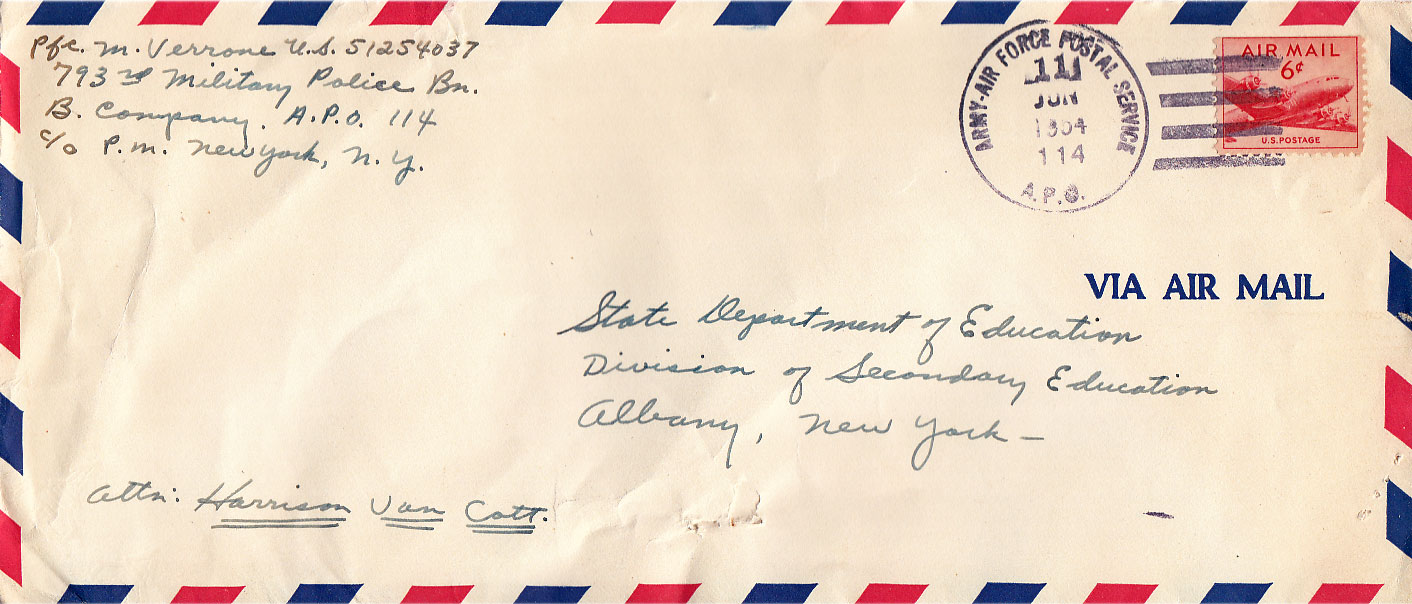 Pfc. M. Verrone U.S. 51254037
793rd Military Police Bn.
B. Company. A.P.O. 114
c/o P.M. New York, N.Y.
ARMY-AIR FORCE POSTAL SERVICE
11
JUN
1954
114
A.P.O.
AIR MAIL
6¢
U.S. POSTAGE
VIA AIR MAIL
State Department of Education
Division of Secondary Education
Albany, New York –
Attn: Harrison Van Cott.